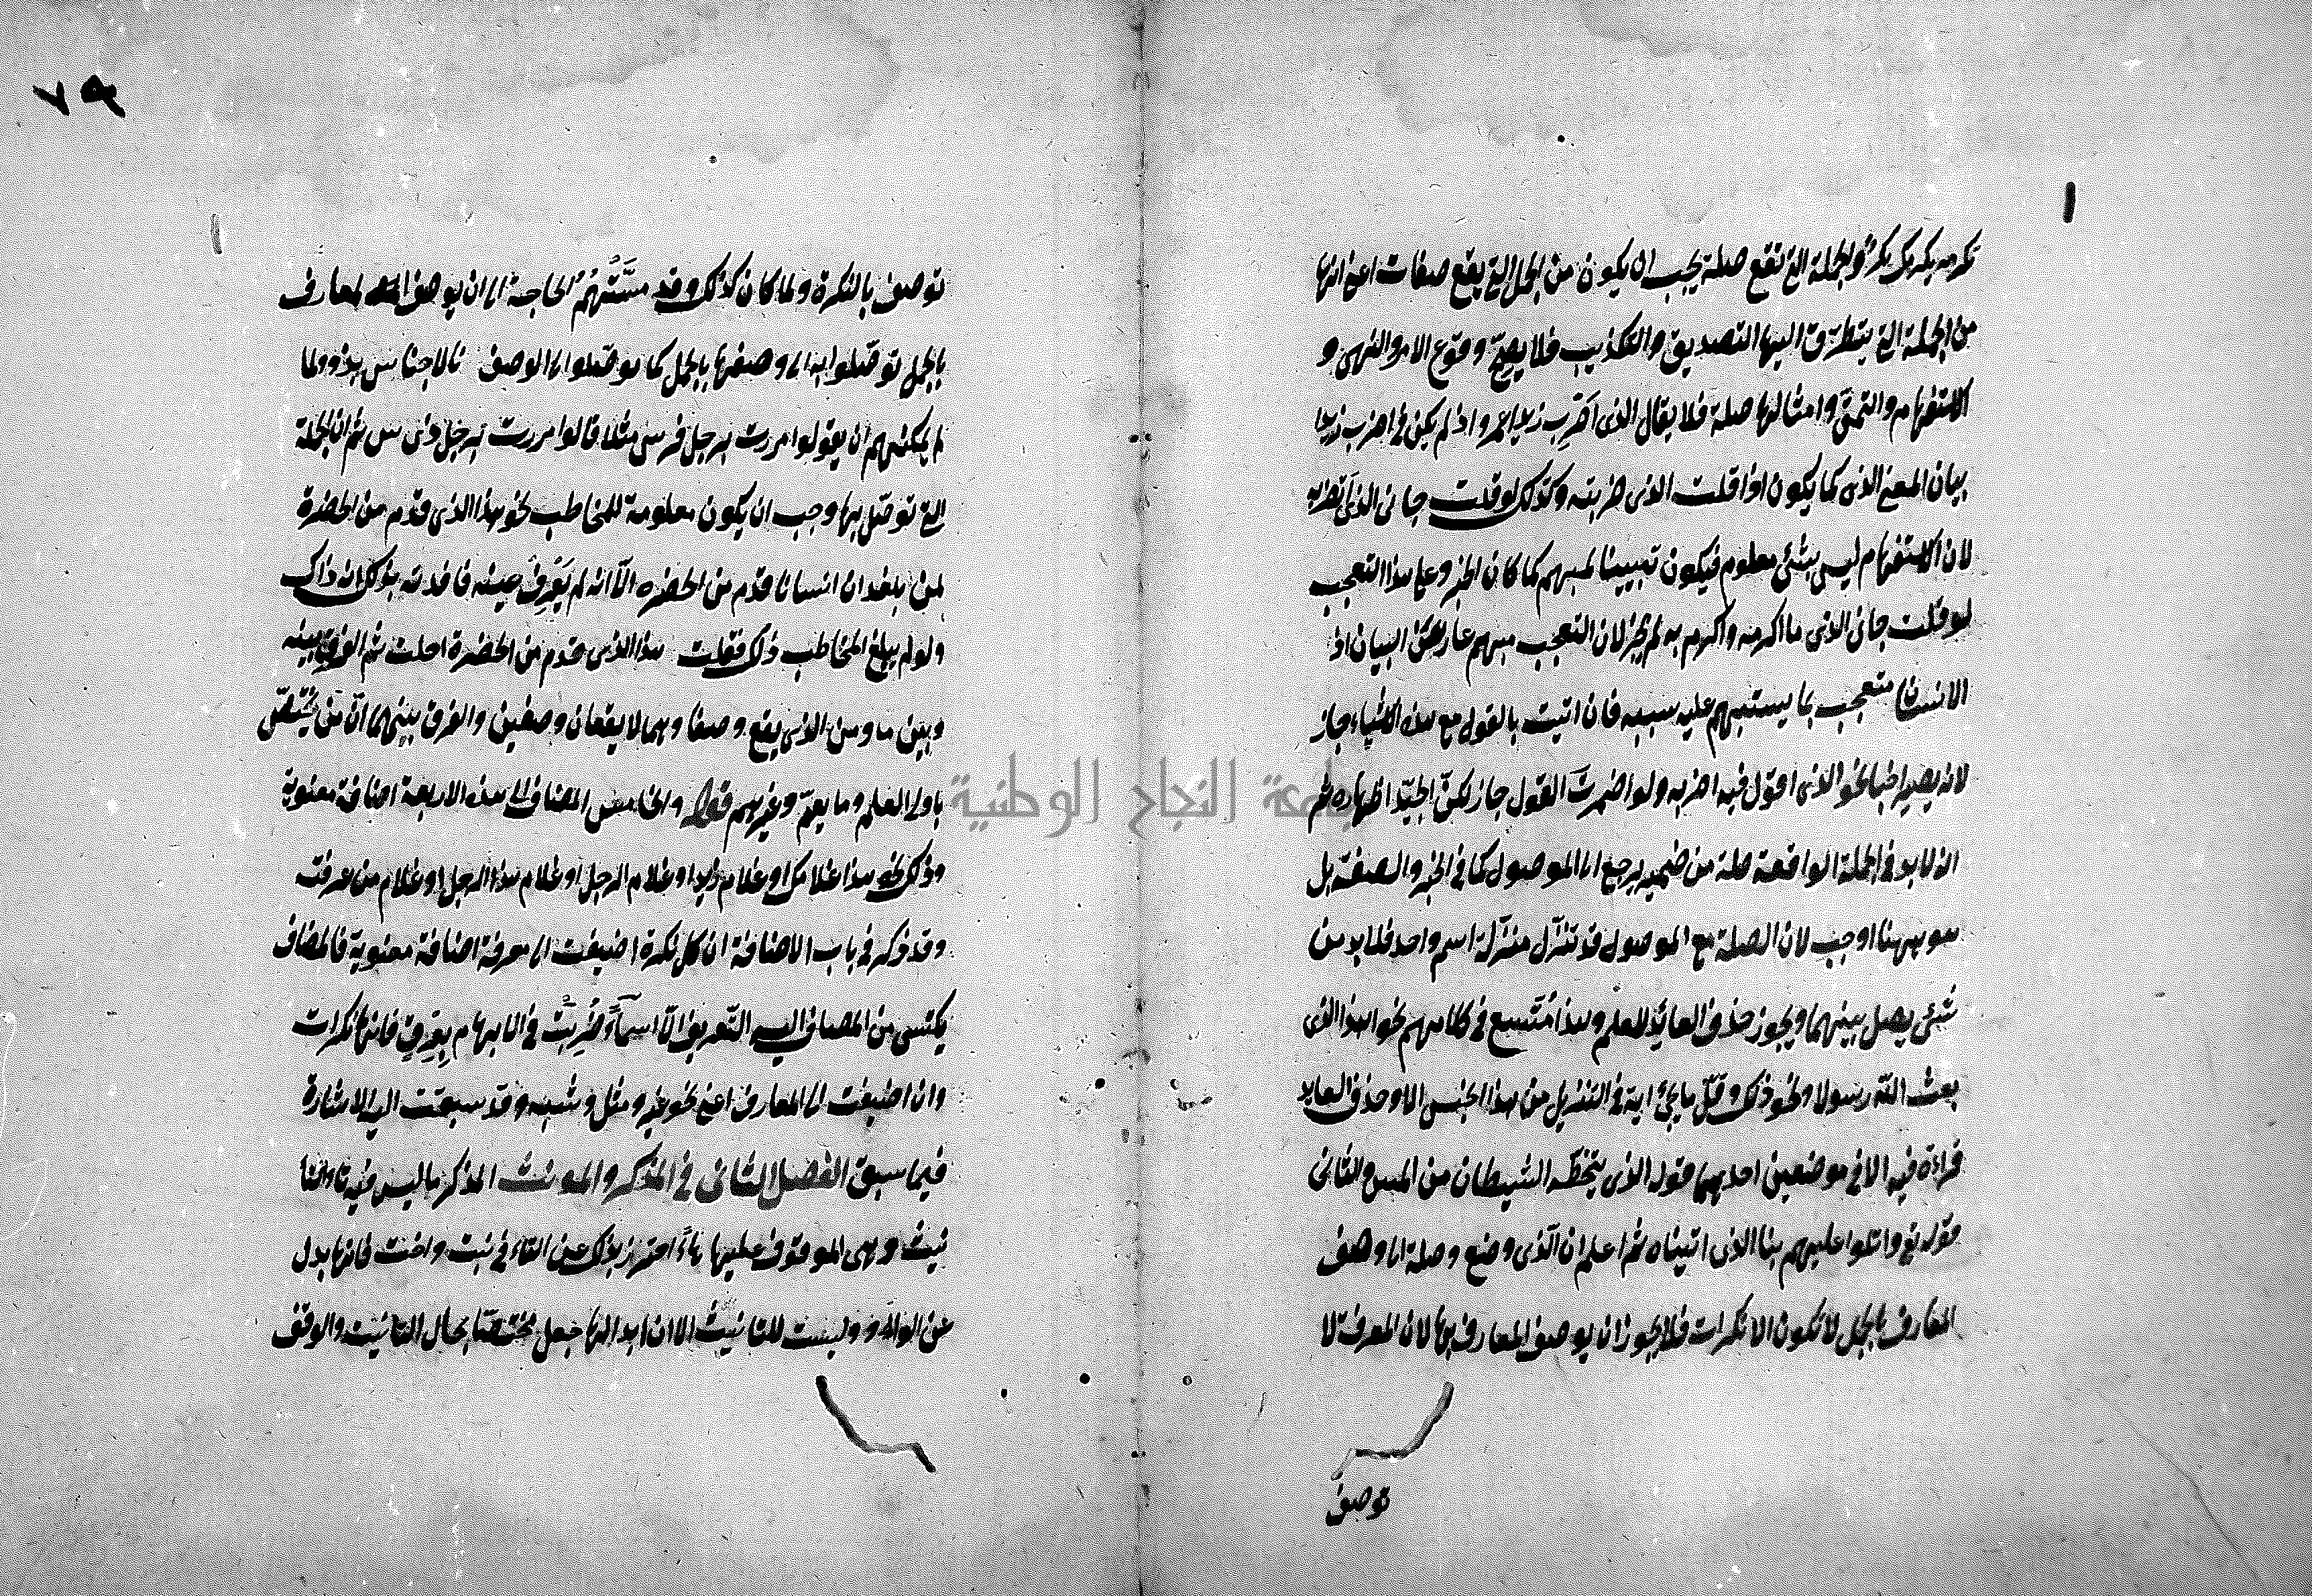 تكرمه يكر بكر والجملة التي تقع صلة يجب ان يكون من الجمل التي يقع صفات اعني انها
من الجملة التي يتطرق اليها التصديق والتكذيب فلا يصح وقوع الامر والنهى و
الاستفهام والتمنى وامثالها صلة فلا يقال الذى اضرب زيدا عمرو اذ لم يكن في اضرب زيدا
بيان المعنى الذى كما يكون اذا قلت الذى ضربته وكذلك لو قلت جانى الذى أتضربه
لان الاستفهام ليس بشئ معلوم فيكون تبيينا لمبهم كما كان الخبر وعلى هذا التعجب
لو قلت جانى الذى ما اكرمه واكرم به لم يجز لان التعجب مبهم عار عن البيان اذ
الانسان متعجب بما يستبهم عليه سببه فان اتيت بالقول مع هذه الاشياء جاز
لانه يصير اخبارا نحو الذى اقول فيه اضربه ولو اضمرت القول جاز لكن الجيد اظهاره ثم
انه لابد في الجملة الواقعة صلة من ضمير يرجع الى الموصول كما في الخبر والصفة بل
هو ههنا اوجب لان الصلة مع الموصول قد تنزل منزلة اسم واحد فلابد من
شئ يصل بينهما ويجوز حذف العائد للعلم وهذا متسع في كلامهم نحو اهذا الذى
بعث الله رسولا ونحو ذلك وقل ما يجئ اية في التنزيل من هذا الجنس الا وحذف العايد
قراءة فيه الا في موضعين احدهما قوله الذى يتخبطه الشيطان من المس والثانى
قوله تع واتلوا عليهم بنا الذى اتيناه ثم اعلم ان الذى وضع وصلة الى وصف
المعارف بالجمل لا تكون الا نكرات فلا يجوز ان يوصف المعارف بها لان المعرفة لا
توصف
٧٩
توصف بالنكرة ولما كان كذلك وقد مستهم الحاجة الى ان يوصف المعارف
بالجمل توصلوا به الى وصفها بالجمل كما توصلوا الى الوصف بالاجناس بذو ولما
لم يمكنهم ان يقولوا مررت برجل فرس مثلا قالوا مررت برجل ذى فرس ثم ان الجملة
التي توصل بها وجب ان يكون معلومة للمخاطب نحو هذا الذى قدم من الحضرة
لمن بلغه ان انسانا قدم من الحضره الا انه لم يعرف عينه فافدته بذلك انه ذاك
ولو لم يبلغ المخاطب ذلك فقلت هذا الذى قدم من الحضرة احلت ثم الفرق بينه
وبين ما ومن الذى يقع وصفا وهما لا يقعان وصفين والفرق بينهما ان من يختص
باولى العلم وما يعم وغيرهم قوله والخامس المضاف الى هذه الاربعة اضافة معنوية
وذلك نحو هذا غلامك او غلام زيد او غلام الرجل او غلام هذا الرجل او غلام من عرفت
وقد ذكر في باب الاضافة ان كل نكرة اضيفت الى معرفة اضافة معنوية فالمضاف
يكتسى من المضاف اليه التعريف الا اسماء ضربت في الابهام بعرق فانها نكرات
وان اضيفت الى المعارف اعني نحو غير ومثل وشبه وقد سبقت اليه الاشارة
فيما سبق الفصل الثانى في المذكر والمونث المذكر ما ليس فيه تاء التا
نيث وهى الموقوف عليها هاء احترز بذلك عن التاء في بنت واخت فانها بدل
عن الواو وليست للتانيث الا ان ابدالها جعل مختصا بحال التانيث والوقف
جامعة النجاح الوطنية